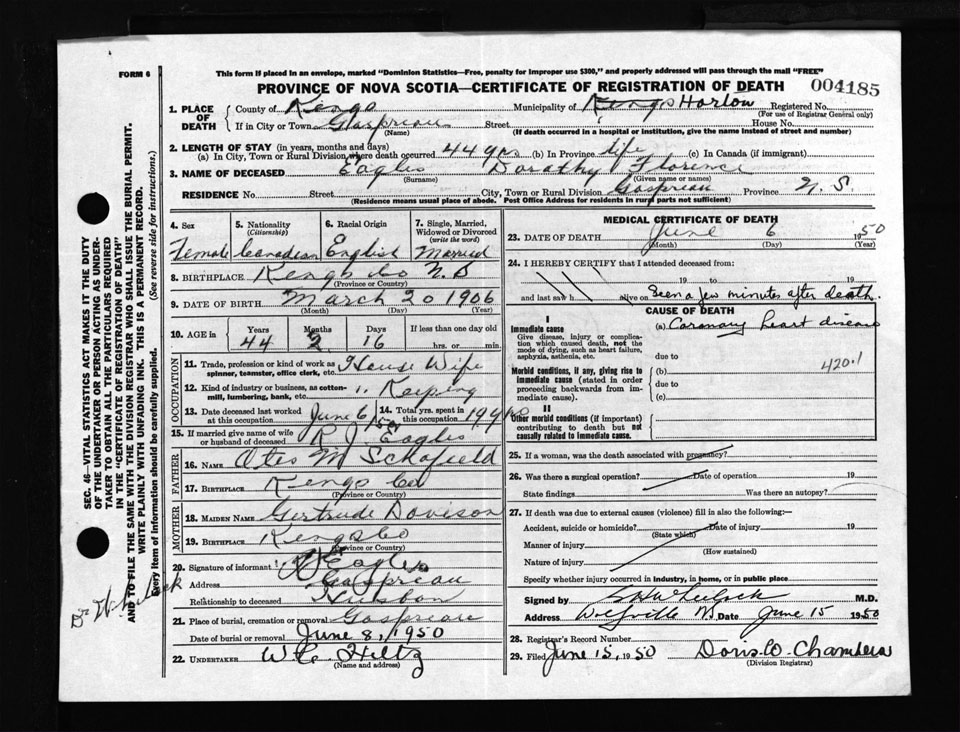 FORM 6
This form if placed in an envelope, marked "Dominion Statistics—Free, penalty for improper use $300," and properly addressed will pass through the mail "FREE"
PROVINCE OF NOVA SCOTIA—CERTIFICATE OF REGISTRATION OF DEATH 004185
1. PLACE OF DEATH County of Kings Municipality of Kings Horton Registered No.
(For use of Registrar General only)
If in City or Town Gaspreau Street House No.
(Name) (If death occurred in a hospital or institution, give the name instead of street and number)
2. LENGTH OF STAY (in years, months and days)
(a) In City, Town or Rural Division where death occurred 44 yrs (b) In Province life (c) In Canada (if immigrant)
3. NAME OF DECEASED Eagles Dorathy Florence
(Surname) (Given name or names)
RESIDENCE No. Street City, Town or Rural Division Gaspreau Province N. S.
(Residence means usual place of abode. Post Office Address for residents in rural parts not sufficient)
4. Sex 5. Nationality (Citizenship) 6. Racial Origin 7. Single, Married, Widowed or Divorced (write the word)
Female Canadian English Married
8. BIRTHPLACE Kings Co N. S
(Province or Country)
9. DATE OF BIRTH March 20 1906
(Month) (Day) (Year)
10. AGE in Years Months Days If less than one day old
44 2 16 hrs. or min.
OCCUPATION
11. Trade, profession or kind of work as spinner, teamster, office clerk, etc. House Wife
12. Kind of industry or business, as cotten-mill, lumbering, bank, etc. " Keeping
13. Date deceased last worked at this occupation June 6/50 14. Total yrs. spent in this occupation 19 yrs
15. If married give name of wife or husband of deceased R J. Eagles
FATHER
16. NAME Otes M Schofield
17. BIRTHPLACE Kings Co
(Province or Country)
MOTHER
18. MAIDEN NAME Gertrude Davison
19. BIRTHPLACE Kings Co
(Province or Country)
20. Signature of informant Eagles
Address Gaspreau
Relationship to deceased Husbon
21. Place of burial, cremation or removal Gaspreau
Date of burial or removal June 8, 1950
22. UNDERTAKER W. C. Hiltz
(Name and address)
MEDICAL CERTIFICATE OF DEATH
23. DATE OF DEATH June 6 1950
(Month) (Day) (Year)
24. I HEREBY CERTIFY that I attended deceased from:
19 to 19
and last saw h alive on Seen a few minutes after death.
CAUSE OF DEATH
I
Immediate cause (a) Coronary heart disease
Give disease, injury or complication which caused death, not the mode of dying, such as heart failure, asphyxia, asthenia, etc.
due to
420.1
Morbid conditions, if any, giving rise to immediate cause (stated in order proceeding backwards from immediate cause).
(b)
due to
(c)
II
Other morbid conditions (if important) contributing to death but not causally related to immediate cause.
25. If a woman, was the death associated with pregnancy?
26. Was there a surgical operation? Date of operation 19
State findings Was there an autopsy?
27. If death was due to external causes (violence) fill in also the following:—
Accident, suicide or homicide? Date of injury 19
(State which)
Manner of injury
(How sustained)
Nature of injury
Specify whether injury occurred in industry, in home, or in public place
Signed by Wheelock M.D.
Address Wolfville NS Date June 15 1950
28. Registrar's Record Number
29. Filed June 15, 1950 Doris W. Chambers
(Division Registrar)
SEC. 46—VITAL STATISTICS ACT MAKES IT THE DUTY
OF THE UNDERTAKER OR PERSON ACTING AS UNDER-
TAKER TO OBTAIN ALL THE PARTICULARS REQUIRED
IN THE "CERTIFICATE OF REGISTRATION OF DEATH"
AND TO FILE THE SAME WITH THE DIVISION REGISTRAR WHO SHALL ISSUE THE BURIAL PERMIT.
WRITE PLAINLY WITH UNFADING INK. THIS IS A PERMANENT RECORD.
Every item of information should be carefully supplied. (See reverse side for instructions.)
Dr Wheelock